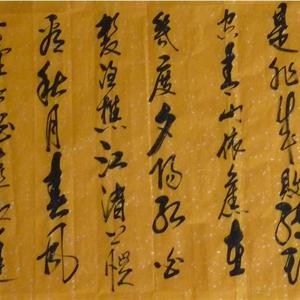 是非成敗轉頭
空青山依舊在
幾度夕陽紅白
髮漁樵江渚上慣
看秋月春風